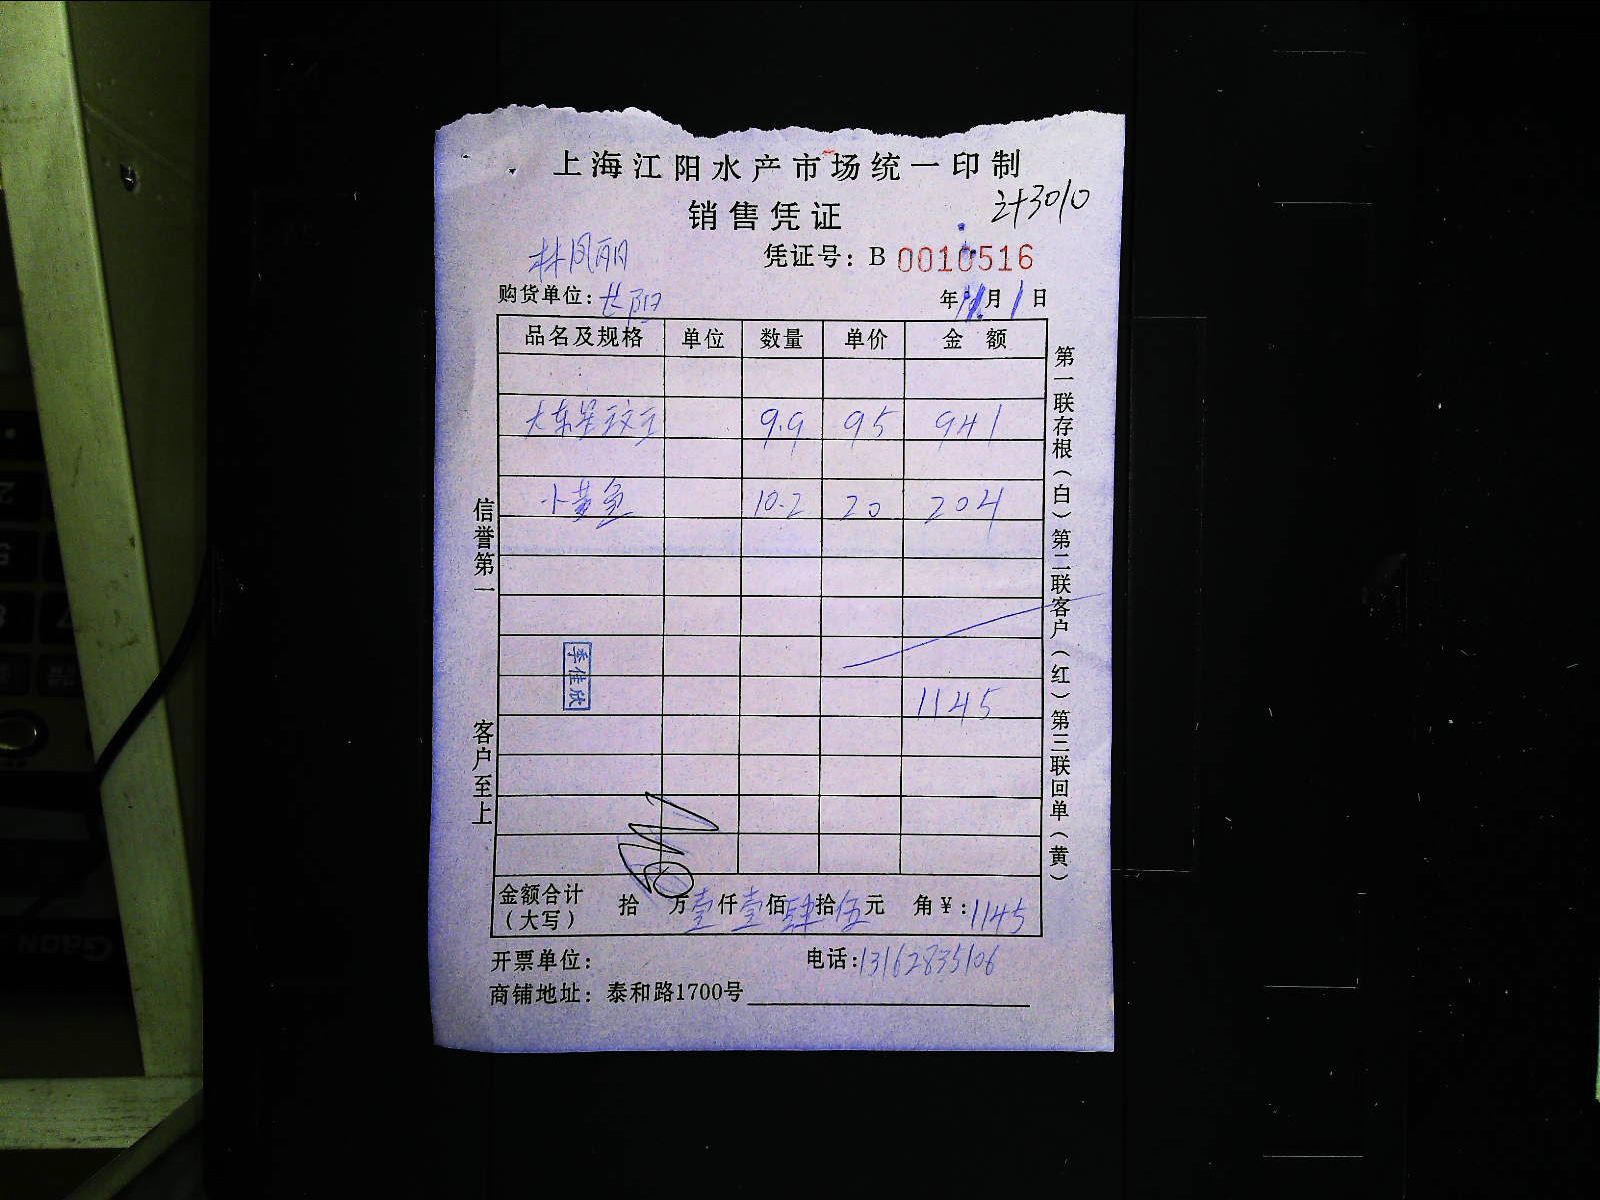 上海江阳水产市场统一印制
计3010
销售凭证
林凤丽
凭证号：B 0010516
购货单位：长阳
年 月1日
品名及规格 单位 数量 单价 金额
大东星斑 9.9 95 941
小黄鱼 10.2 20 204
1145
李佳欣
金额合计（大写） 拾 万壹仟壹佰肆拾伍元 角￥：1145
开票单位：
电话：13162835106
商铺地址：泰和路1700号
信誉第一 客户至上
第一联存根（白）第二联客户（红）第三联回单（黄）